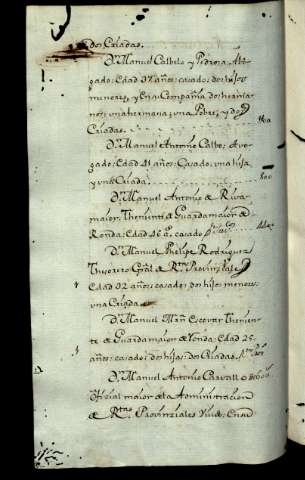 dos Criadas.
Dn. Manuel Calbelo y Pedrosa Abo-
gado: Edad 37 años: casado: dos hijos
menores, y En su Compañia dos herma-
nos: una hermana; una Pobre, y dos
Criadas.
Dn. Manuel Antonio Calbo: Avo-
gado: Edad 41 años: Casado: una hija
y una Criada
Dn. Manuel Antonio de Riva
maior: Theniente de Guarda maior de
Ronda: Edad 46 as. casado
Dn. Manuel Phelipe Rodriguez
Thesorero Gral de Rtas Provinziales
Edad 32 años: casado: dos hijos menores:
una Criada
Dn. Manuel Man Escovar Thenien-
te de Guarda maior de Ronda: Edad 25
años: casado: dos hijos: dos Criadas
Dn. Manuel Antonio Caravallo
Ofizial maior de la Administracion
de Rtas Provinziales Vive En su